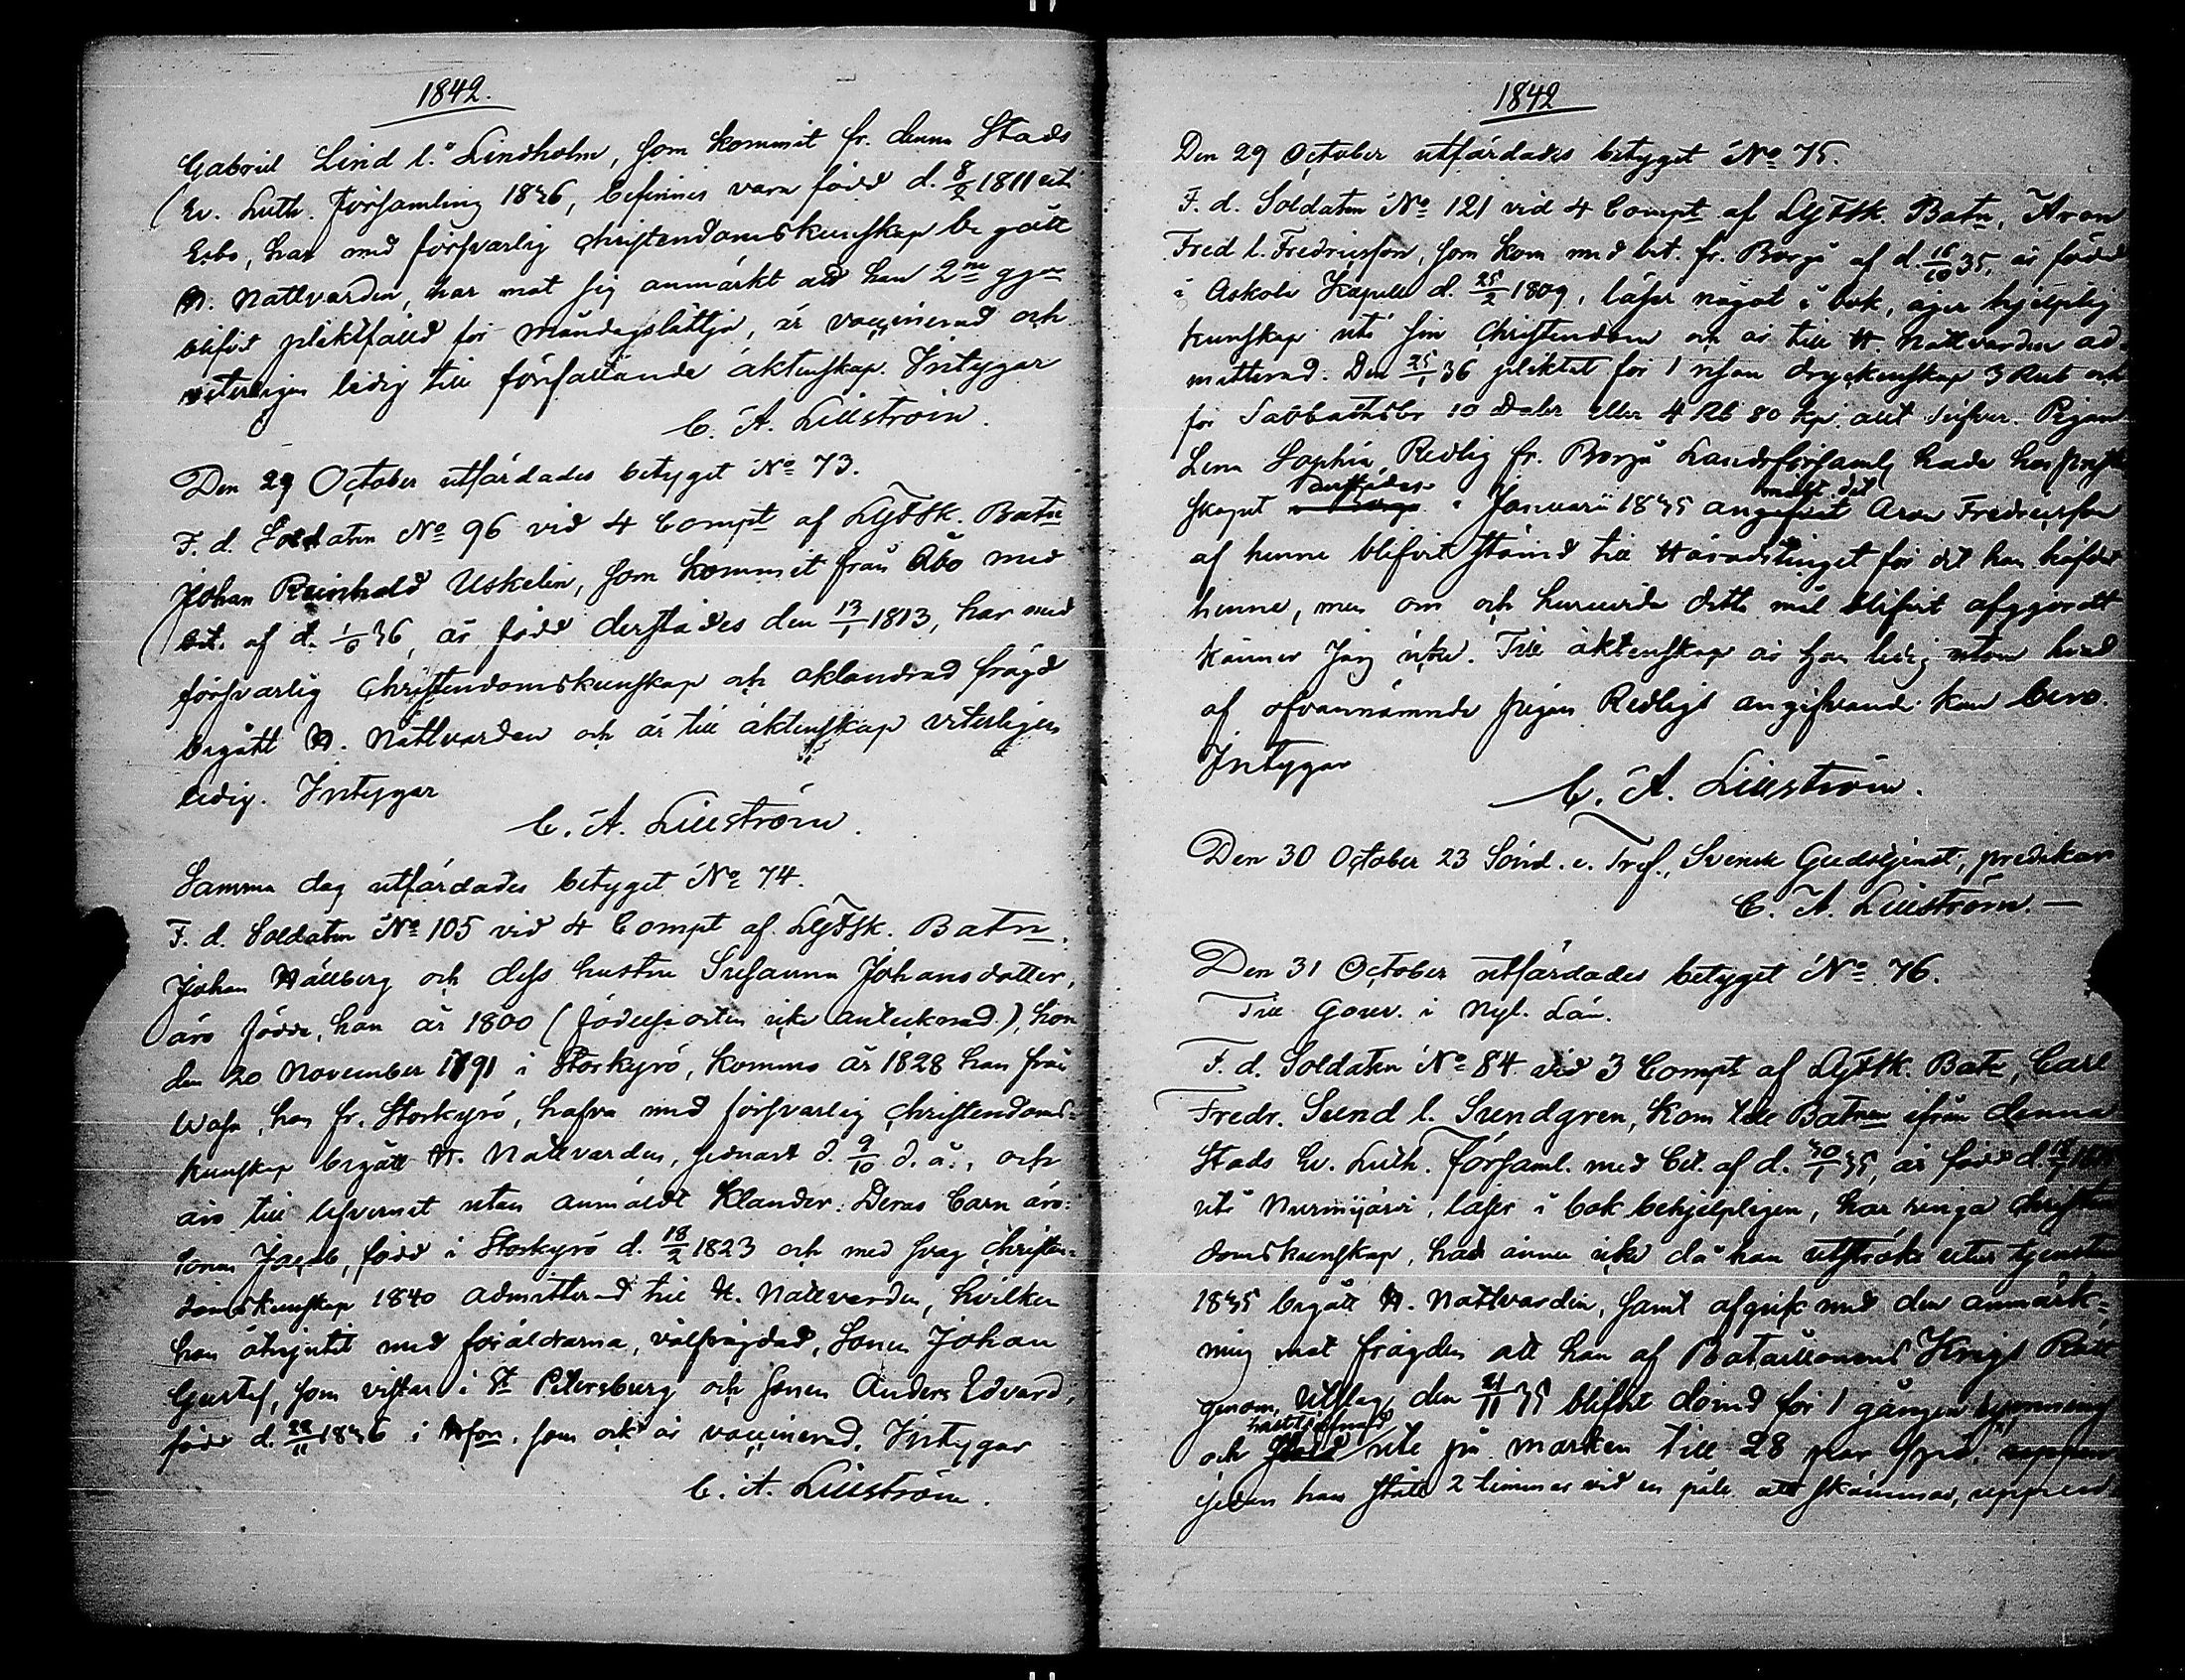 1842.
Gabriel Lind l. Lindholm, som kommit fr. denna Stads
Ev. Luth. Församling 1836, befinnes vara född d. 8/2 1811 uti
Esbo, har med försvarlig christendomskunskap begått
H. Nattvarden, har mot sig anmärkt att han 2ne ggr
blifvit pliktfälld för måndagslättja, är vaccinerad och
veterligen ledig till förefallande äktenskap. Intygar
C. A. Lillström.
Den 29 October utfärdades betyget No 73.
F. d. Soldaten No 96 vid 4 Compt af LGFSk. Batn
Johan Reinhold Uskelin, som kommit från Åbo med
bet. af d. 36, är född derstädes den 13/1 1813, har med
försvarlig Christendomskunskap och oklandrad frägd
begått H. Nattvarden och är till äktenskap veterligen
ledig. Intygar
C. A. Lillström.
Samma dag utfärdades betyget No 74.
F. d. Soldaten No 105 vid 4 Compt af LGFSk. Batn.
Johan Hällberg och dess hustru Susanna Johansdotter,
äro födde, han år 1800 (födelseorten icke antecknad), hon
den 20 November 1791 i Storkyrö, kommo år 1828 han från
Wasa, hon fr. Storkyrö, hafva med försvarlig christendoms-
kunskap begått H. Nattvarden, sednast d. 9/10 d. å., och
äro till lefvernet utan anmäldt klander. Deras barn äro:
Sonen Jacob, född i Storkyrö d. 18/2 1823 och med svag christen-
domskunskap 1840 admitterad till H. Nattvarden, hvilken
han åtnjutit med föräldrarna, välfrägdad, Sonen Johan
Gustaf, som vistas i St Petersburg och sonen Anders Edvard,
född d. 22/11 1836 i Hfors, som ock är vaccinerad. Intygar
C. A. Lillström.
1842
Den 29 October utfärdades betyget No 75.
F. d. Soldaten No 121 vid 4 Compt af LGFSk. Batn, Aron
Fred l. Fredricsson, som kom med bet. fr. Borgå af d. 16/10 35, är född
i Askola Kapell d. 25/2 1809, läser något i bok, äger hjelplig
kunskap uti sin Christendom och är till H. Nattvarden ad-
mitterad. Den 25/1 36 pliktat för 1 resan dryckenskap 3 Rub och
för Sabbathsbr 10 Daler eller 4 Rb 80 kp. allt Silfver. Pigan
Lena Sophia Redlig fr. Borgå Landsförsaml hade hos prest-
derstädes mält det
skapet i Januarii 1835 Aron Fredricsson
af henne blifvit stämd till Häradstinget för det han häfdat
henne, men om och huruvida detta mål blifvit afgjordt
känner Jag icke. Till äktenskap är han ledig utom hvad
af ofvannämnde pigan Redligs angifvande kan bero.
Intygar
C. A. Lillström.
Den 30 October 23 Sönd. e. Tref., Svensk Gudstjenst, predikan
C. A. Lillström.—
Den 31 October utfärdades betyget No 76.
Till Gouv. i Nyl. Län.
F. d. Soldaten No 84 vid 3 Compt af LGFSk. Batn, Carl
Fredr. Sund l. Sundgren, kom till Batnen ifrån denna
Stads Ev. Luth. Församl. med bet. af d. 30/1 35, är född d.
uti Nurmijärvi, läser i bok behjelpligen, har ringa christen-
domskunskap, hade ännu icke då han utströks utur tjensten
1835 begått H. Nattvarden, samt afgick med den anmärk-
ning mot frägden att han af Bataillonens Krigs Rätt
genom Utslag den 21/11 35 blifvit dömd för 1 gången rymning
och ute på marken till 28 par spö,
sedan han stått 2 timmar vid en påle att skämmas,